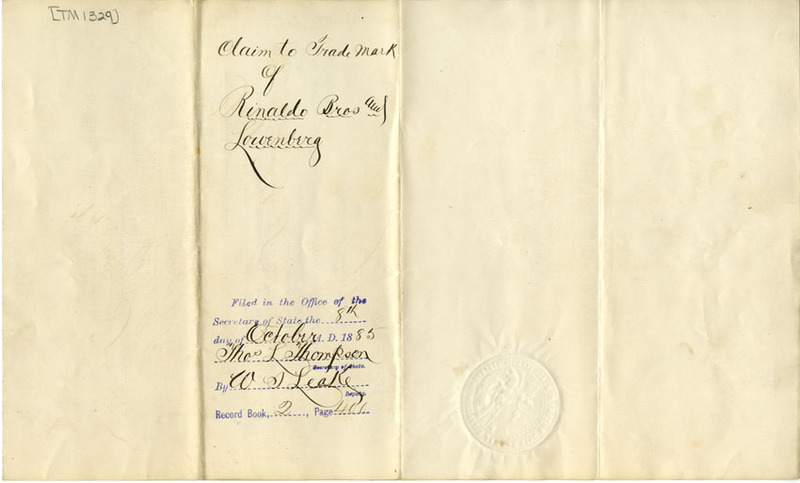 [TM1329]
Claim to Trade Mark
of
Rinaldo Bros and
Lowenberg
Filed in the Office of the
Secretary of State the 8th
day of October A. D. 1885
Thos L. Thompson
Secretary of State.
By W S Leake
Deputy.
Record Book, 2, Page